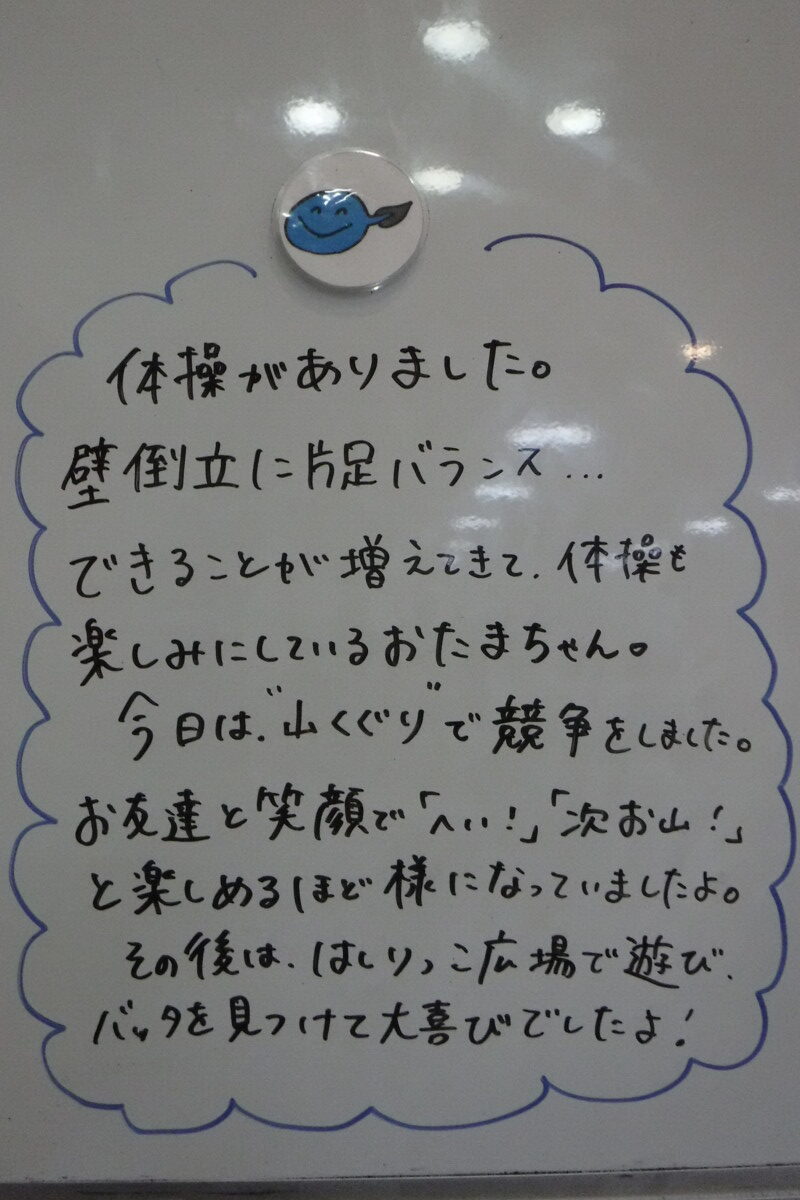 体操がありました。
壁倒立に片足バランス…
できることが増えてきて、体操も
楽しみにしているおたまちゃん。
今日は、"山くぐり"で競争をしました。
お友達と笑顔で「へい!」「次お山!」
と楽しめるほど様になっていましたよ。
その後は、はしりっこ広場で遊び、
バッタを見つけて大喜びでしたよ!